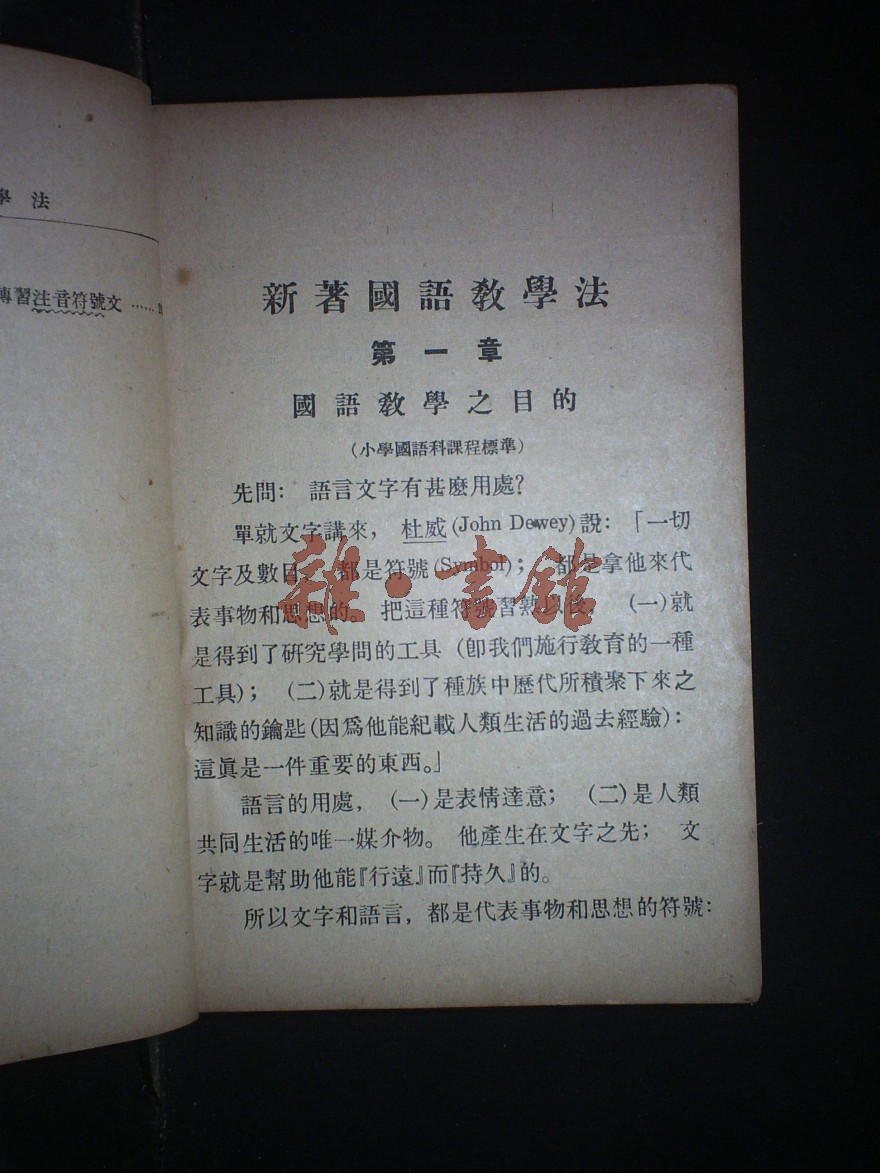 學 法
傳習注音符號文 ……
新著國語教學法
第一章
國語教學之目的
(小學國語科課程標準)
先問: 語言文字有甚麽用處?
單就文字講來, 杜威(John Dewey)說:「一切
文字及數目, 都是符號(Symbol); 都是拿他來代
表事物和思想的。 把這種符號習熟以後, (一)就
是得到了硏究學問的工具 (卽我們施行敎育的一種
工具); (二)就是得到了種族中歷代所積聚下來之
知識的鑰匙(因爲他能紀載人類生活的過去經驗):
這眞是一件重要的東西。」
語言的用處, (一)是表情達意; (二)是人類
共同生活的唯一媒介物。 他產生在文字之先; 文
字就是幫助他能『行遠』而『持久』的。
所以文字和語言, 都是代表事物和思想的符號:
雜·書館